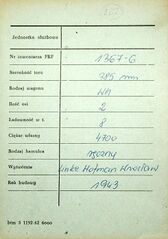 Jednostka służbowa
Nr inwentarza PKP 1367-6
Szerokość toru 785 mm
Rodzaj wagonu
Ilość osi 2
Ładowność w t. 8
Ciężar własny 4700
Rodzaj hamulca ręczny
Wytwórnia Linke Hofman Wrocław
Rok budowy 1943